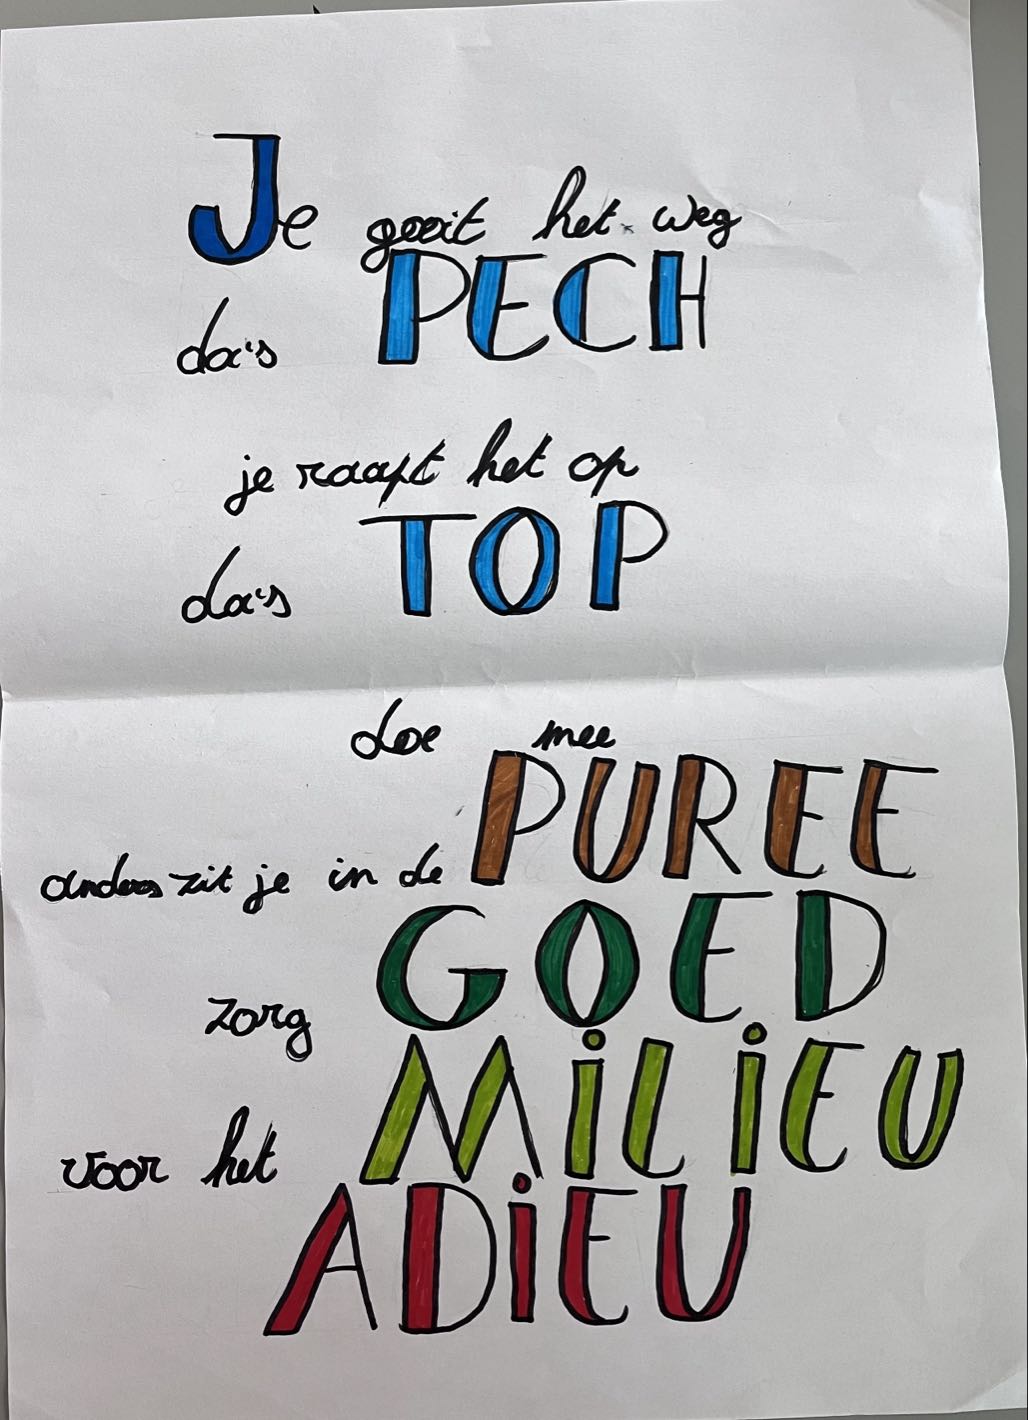 Je gooit het weg
da's PECH
je raapt het op
da's TOP
doe mee
anders zit je in de PUREE
zorg GOED
voor het MiLiEU
ADiEU